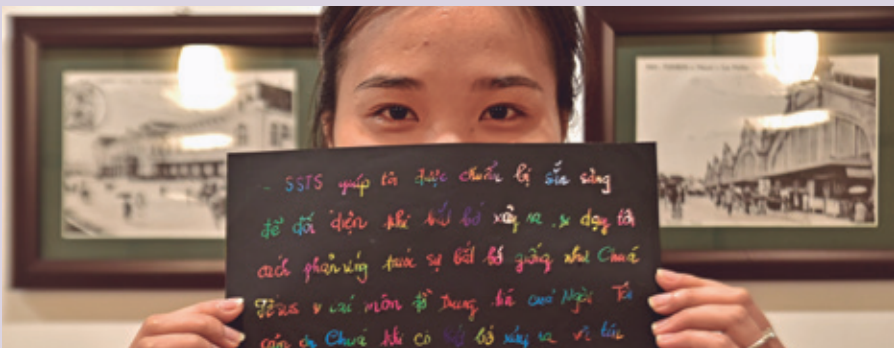 - SSTS giúp tôi được chuẩn bị sẵn sàng
để đối diện khi bắt bớ xảy ra, dạy tôi
cách phản ứng trước sự bắt bớ giống như Chúa
Jêsus và các môn đồ trung tín của Ngài. Tôi
cảm ơn Chúa khi có bắt bớ xảy ra vì